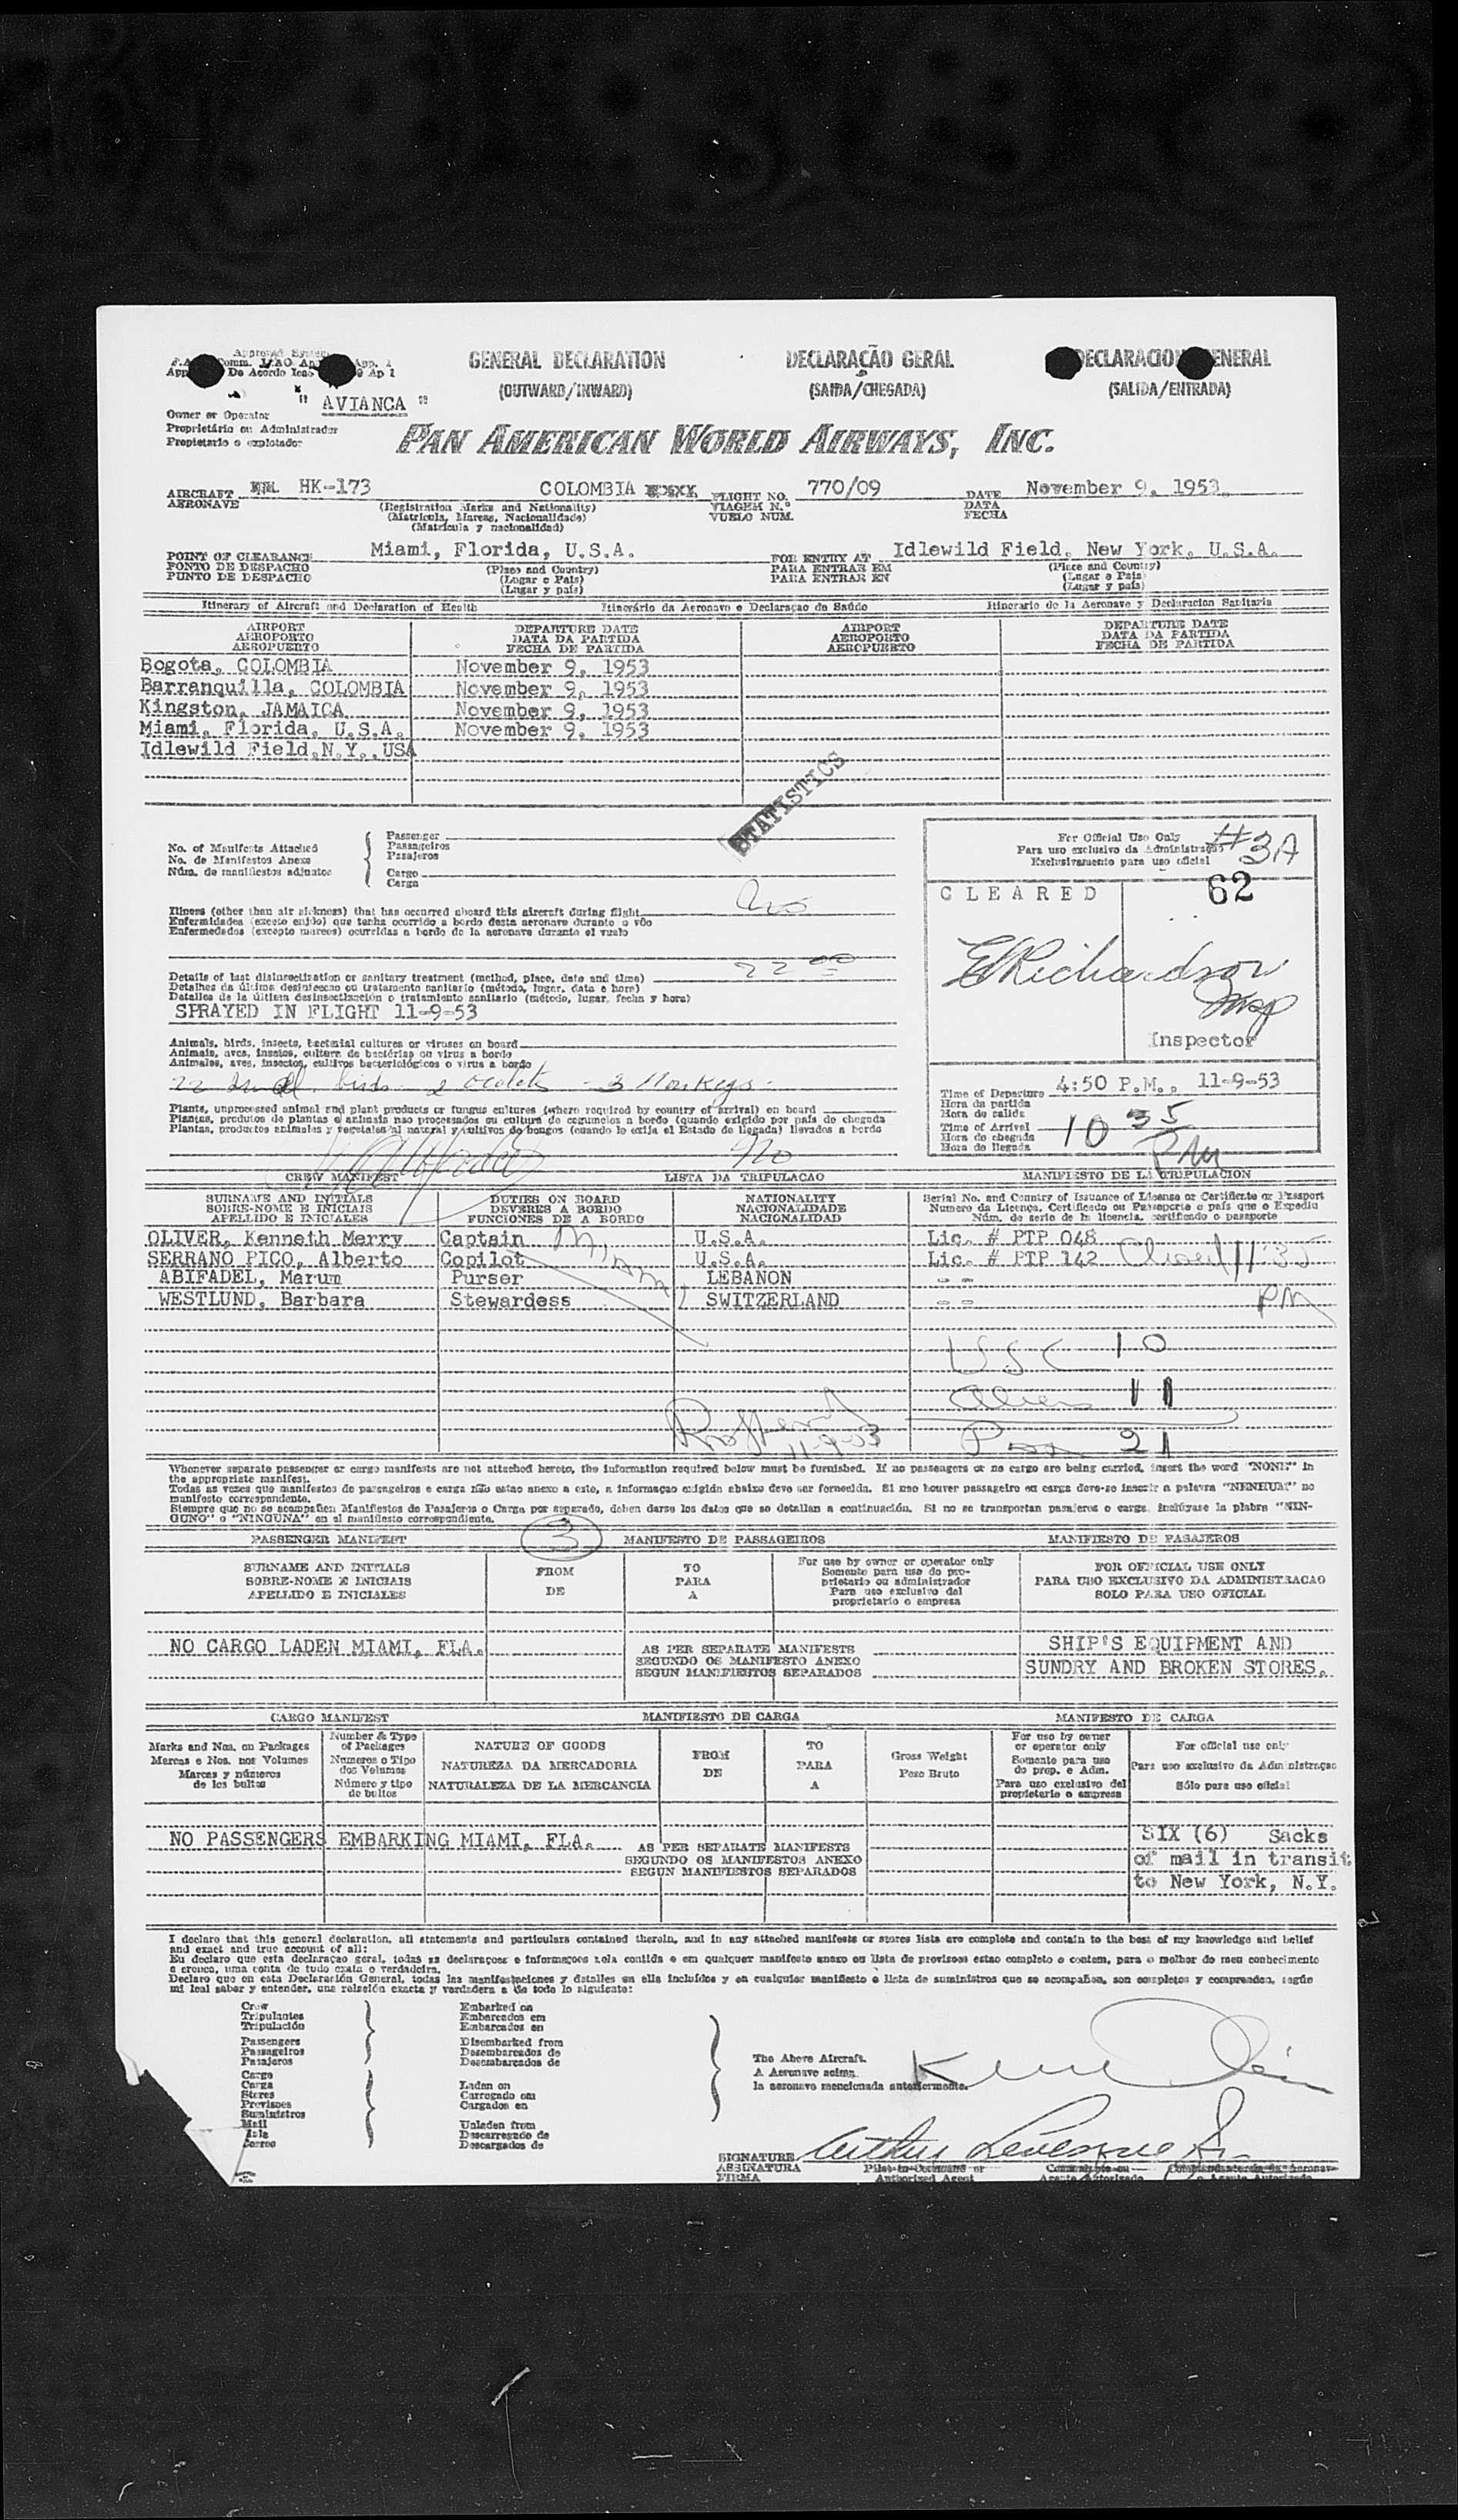 Approved System
GENERAL DECLARATION DECLARAÇÃO GERAL DECLARACION GENERAL
(OUTWARD/INWARD) (SAIDA/CHEGADA) (SALIDA/ENTRADA)
" AVIANCA "
Owner or Operator
Proprietário ou Administrador
Propietario o explotador
PAN AMERICAN WORLD AIRWAYS, INC.
AIRCRAFT HK-173 COLOMBIA FLIGHT NO. 770/09 DATE November 9, 1953.
AERONAVE (Registration Marks and Nationality) VIAGEM N.º DATA
(Matricula, Marcas, Nacionalidade) VUELO NUM. FECHA
(Matricula y nacionalidad)
POINT OF CLEARANCE Miami, Florida, U.S.A. FOR ENTRY AT Idlewild Field, New York, U.S.A.
PONTO DE DESPACHO (Place and Country) PARA ENTRAR EM (Place and Country)
PUNTO DE DESPACHO (Lugar e Pais) PARA ENTRAR EN (Lugar e Pais)
(Lugar y pais) (Lugar y pais)
Itinerary of Aircraft and Declaration of Health Itinerário da Aeronave e Declaraçao de Saúde Itinerario de la Aeronave y Declaracion Sanitaria
AIRPORT DEPARTURE DATE AIRPORT DEPARTURE DATE
AEROPORTO DATA DA PARTIDA AEROPORTO DATA DA PARTIDA
AEROPUERTO FECHA DE PARTIDA AEROPUERTO FECHA DE PARTIDA
Bogota, COLOMBIA November 9, 1953
Barranquilla, COLOMBIA November 9, 1953
Kingston, JAMAICA November 9, 1953
Miami, Florida, U.S.A. November 9, 1953
Idlewild Field,N.Y.,USA
STATISTICS
No. of Manifests Attached
No. de Manifestos Anexos
Núm. de manifiestos adjuntos
Passenger
Passageiros
Pasajeros
Cargo
Carga
For Official Use Only #3A
Para uso exclusivo da Administração
Exclusivamente para uso oficial
CLEARED 62
Illness (other than air sickness) that has occurred aboard this aircraft during flight
Enfermidades (exceto enjôo) que tenha ocorrido a bordo desta aeronave durante o vôo
Enfermedades (excepto mareos) ocurridas a bordo de la aeronave durante el vuelo
E Richardson
Insp
Inspector
2200
Details of last disinsectization or sanitary treatment (method, place, date and time)
Detalhes da última desinfeccao ou tratamento sanitario (método, lugar, data e hora)
Detalles de la última desinsectización o tratamiento sanitario (método, lugar, fecha y hora)
SPRAYED IN FLIGHT 11-9-53
Animals, birds, insects, bacterial cultures or viruses on board
Animais, aves, insetos, cultura de bactérias ou virus a bordo
Animales, aves, insectos, cultivos bacteriológicos o virus a bordo
birds - 2 Ocelots - 3 Monkeys -
Time of Departure 4:50 P.M., 11-9-53
Hora da partida
Hora de salida
Time of Arrival 10 35 PM
Hora de chegada
Hora de llegada
Plants, unprocessed animal and plant products or fungus cultures (where required by country of arrival) on board
Plantas, produtos de plantas e animais nao processados ou cultura de cogumelos a bordo (quando exigido por país de chegada
Plantas, productos animales y vegetales al natural y cultivos de hongos (cuando lo exija el Estado de llegada) llevados a bordo
No
CREW MANIFEST LISTA DA TRIPULACAO MANIFIESTO DE LA TRIPULACION
SURNAME AND INITIALS DUTIES ON BOARD NATIONALITY Serial No. and Country of Issuance of License or Certificate or Passport
SOBRE-NOME E INICIAIS DEVERES A BORDO NACIONALIDADE Numero da Licença, Certificado ou Passaporte e país que o Expediu
APELLIDO E INICIALES FUNCIONES DE A BORDO NACIONALIDAD Núm. de serie de la licencia, certificado o pasaporte
OLIVER, Kenneth Merry Captain U.S.A. Lic. # PTP 048
SERRANO PICO, Alberto Copilot U.S.A. Lic. # PTP 142 Closed 11:35
ABIFADEL, Marun Purser LEBANON - -
WESTLUND, Barbara Stewardess SWITZERLAND - - PM
USC 10
Aliens 11
11-9-53 Pax 21
Whenever separate passenger or cargo manifests are not attached hereto, the information required below must be furnished. If no passengers or no cargo are being carried, insert the word "NONE" in
the appropriate manifest.
Todas as vezes que manifestos de passageiros e carga não estao anexo a este, a informaçao exigida abaixo deve ser fornecida. Si nao houver passageiro ou carga deve-se inserir a palavra "NENHUM" no
manifesto correspondente.
Siempre que no se acompañen Manifiestos de Pasajeros o Carga por separado, deben darse los datos que se detallan a continuación. Si no se transportan pasajeros o carga, inclúyase la plabra "NIN-
GUNO" o "NINGUNA" en el manifiesto correspondiente.
PASSENGER MANIFEST 3 MANIFESTO DE PASSAGEIROS MANIFIESTO DE PASAJEROS
SURNAME AND INITIALS FROM TO For use by owner or operator only FOR OFFICIAL USE ONLY
SOBRE-NOME E INICIAIS DE PARA Somente para uso do pro- PARA USO EXCLUSIVO DA ADMINISTRACAO
APELLIDO E INICIALES A prietario ou administrador SOLO PARA USO OFICIAL
Para uso exclusivo del
proprietario o empresa
NO CARGO LADEN MIAMI, FLA. AS PER SEPARATE MANIFESTS SHIP'S EQUIPMENT AND
SEGUNDO OS MANIFESTO ANEXO
SEGUN MANIFIESTOS SEPARADOS SUNDRY AND BROKEN STORES.
CARGO MANIFEST MANIFIESTO DE CARGA MANIFESTO DE CARGA
Marks and Nos. on Packages Number & Type of Packages NATURE OF GOODS FROM TO Gross Weight For use by owner or operator only For official use only
Marcas e Nos. nos Volumes Numeros o Tipo dos Volumes NATUREZA DA MERCADORIA DE PARA Peso Bruto Somente para uso do prop. e Adm. Para uso exclusivo da Administraçao
Marcas y números de los bultos Número y tipo de bultos NATURALEZA DE LA MERCANCIA A Para uso exclusivo del propietario o empresa Sólo para uso oficial
NO PASSENGERS EMBARKING MIAMI, FLA. AS PER SEPARATE MANIFESTS SIX (6) Sacks
SEGUNDO OS MANIFESTOS ANEXO of mail in transit
SEGUN MANIFIESTOS SEPARADOS to New York, N.Y.
I declare that this general declaration, all statements and particulars contained therein, and in any attached manifests or stores lists are complete and contain to the best of my knowledge and belief
and exact and true account of all:
Eu declaro que esta declaraçao geral, todas as declaraçoes e informaçoes nela contida e em qualquer manifesto anexo ou lista de provisoes estao completo e contem, para o melhor do meu conhecimento
e crenca, uma conta de tudo exata o verdadeira.
Declaro que en esta Declaración General, todas las manifestaciones y detalles en ella incluidos y en cualquier manifiesto o lista de suministros que se acompañan, son completos y comprenden, según
mi leal saber y entender, una relación exacta y verdadera a de todo lo siguiente:
Crew Embarked on
Tripulantes Embarcados em
Tripulación Embarcados en
Passengers Disembarked from
Passageiros Desembarcados de
Pasajeros Desembarcados de
Cargo
Carga Laden on
Stores Carregado em
Previsoes Cargados en
Suministros
Mail Unladen from
Mala Descarregado de
Correo Descargados de
The Above Aircraft.
A Aeronave acima.
la aeronave mencionada anteriormente.
SIGNATURE Arthur Levesque Jr.
ASSINATURA Pilot-in-Command or
FIRMA Authorized Agent